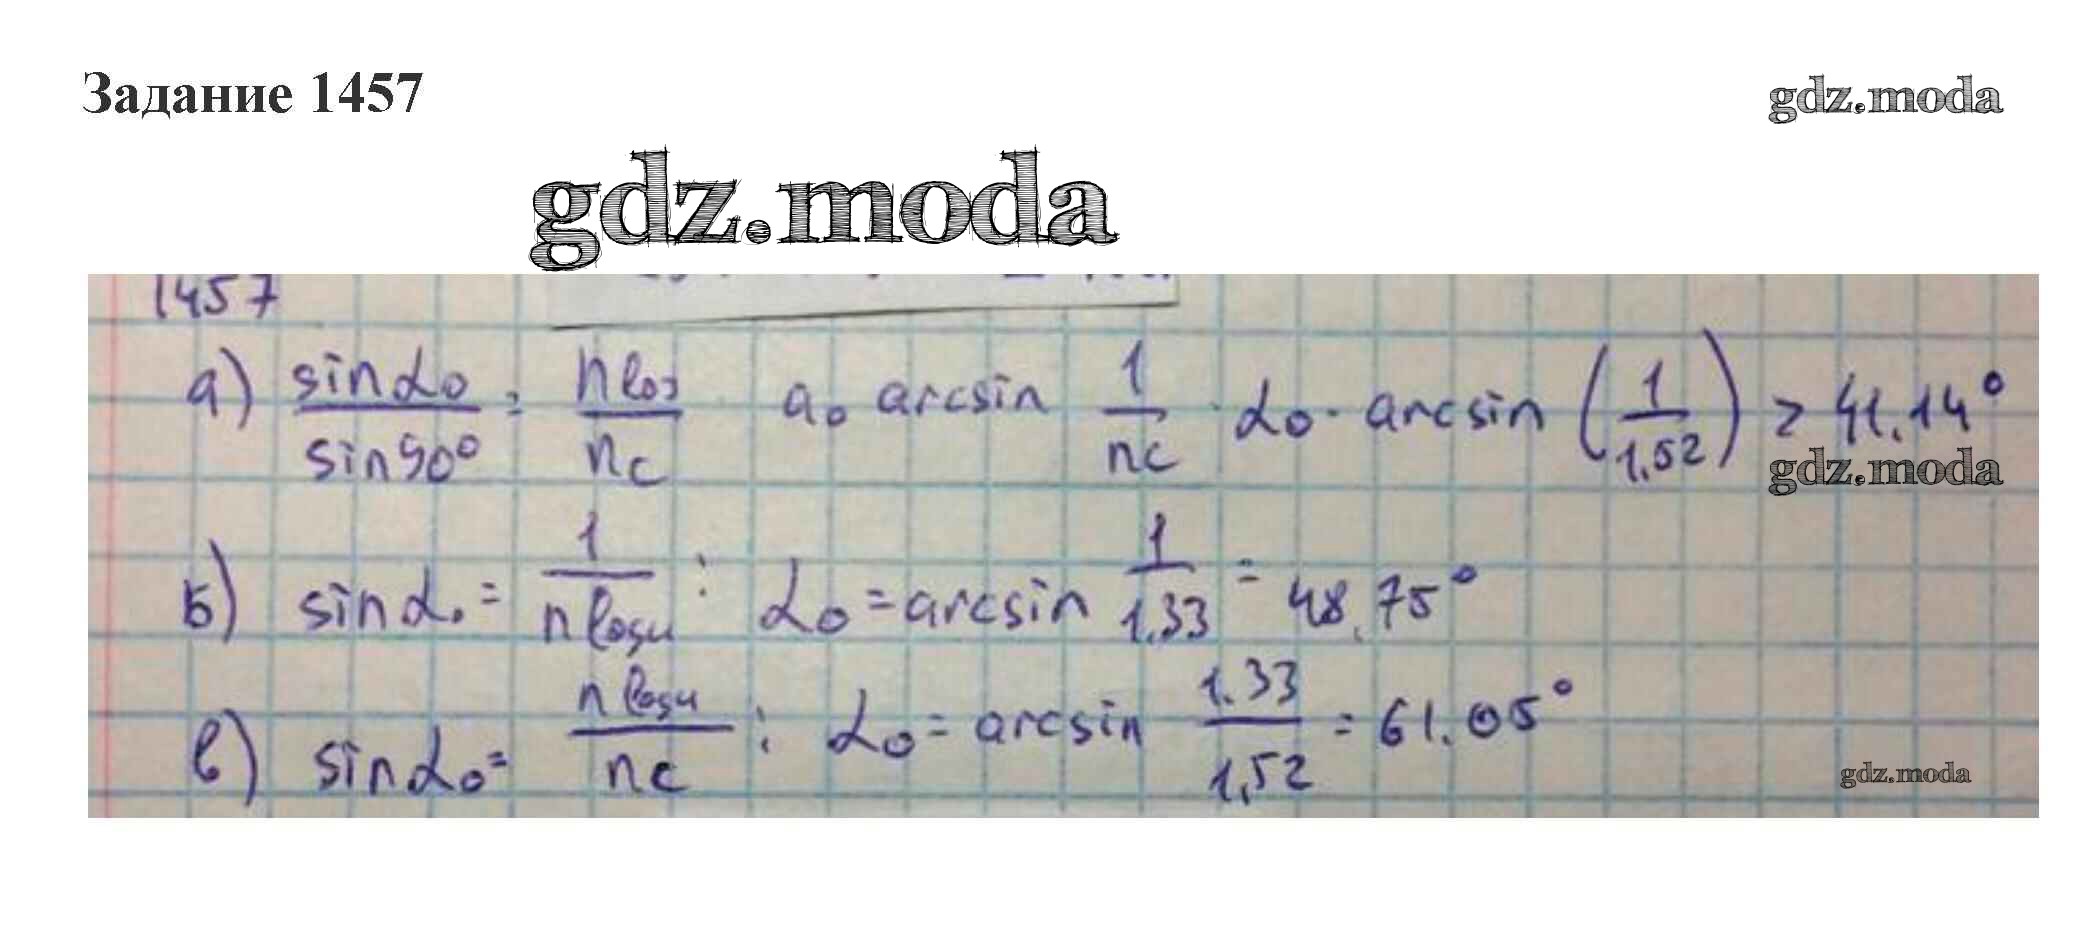 Задание 1457
gdz.moda
gdz.moda
1457
а) sinα₀ / sin90° = n воз / nc a₀ arcsin 1 / nc · α₀ · arcsin (1 / 1,52) = 41.14°
gdz.moda
б) sinα₀ = 1 / n воды ; α₀ = arcsin 1 / 1.33 = 48,75°
в) sinα₀ = n воды / nc ; α₀ = arcsin 1.33 / 1,52 = 61.05°
gdz.moda